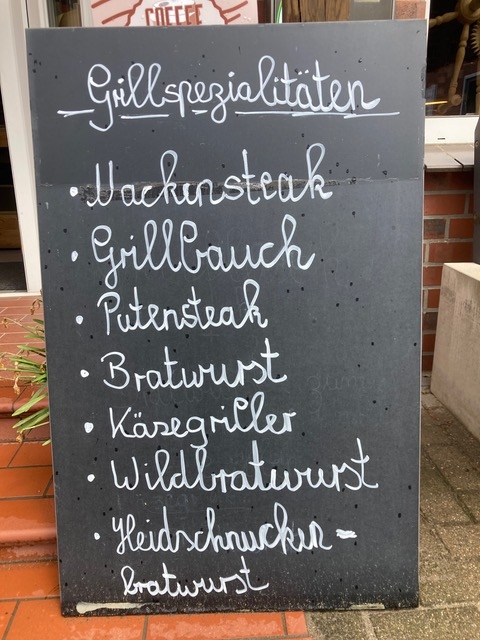 COFFEE
Grillspezialitäten
• Nackensteak
• Grillbauch
• Putensteak
• Bratwurst
• Käsegriller
• Wildbratwurst
• Heidschnucken-
bratwurst